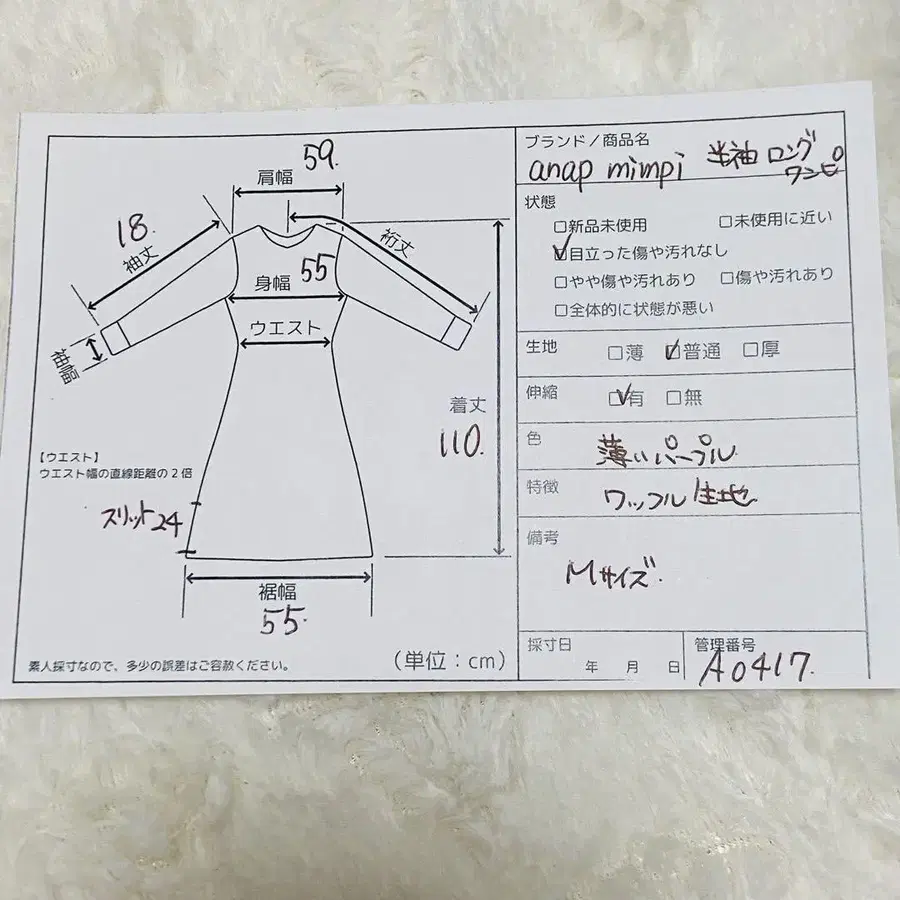 59.
肩幅
18.
袖丈
裄丈
身幅 55
ウエスト
袖幅
着丈
110.
【ウエスト】
ウエスト幅の直線距離の2倍
スリット24
裾幅
55.
素人採寸なので、多少の誤差はご容赦ください。
(単位:cm)
ブランド/商品名
anap mimpi 半袖 ロング
ワンピ
状態
□新品未使用 □未使用に近い
☑目立った傷や汚れなし
□やや傷や汚れあり □傷や汚れあり
□全体的に状態が悪い
生地 □薄 ☑普通 □厚
伸縮 ☑有 □無
色 薄いパープル
特徴 ワッフル生地
備考
Mサイズ.
採寸日 年 月 日
管理番号
A0417.